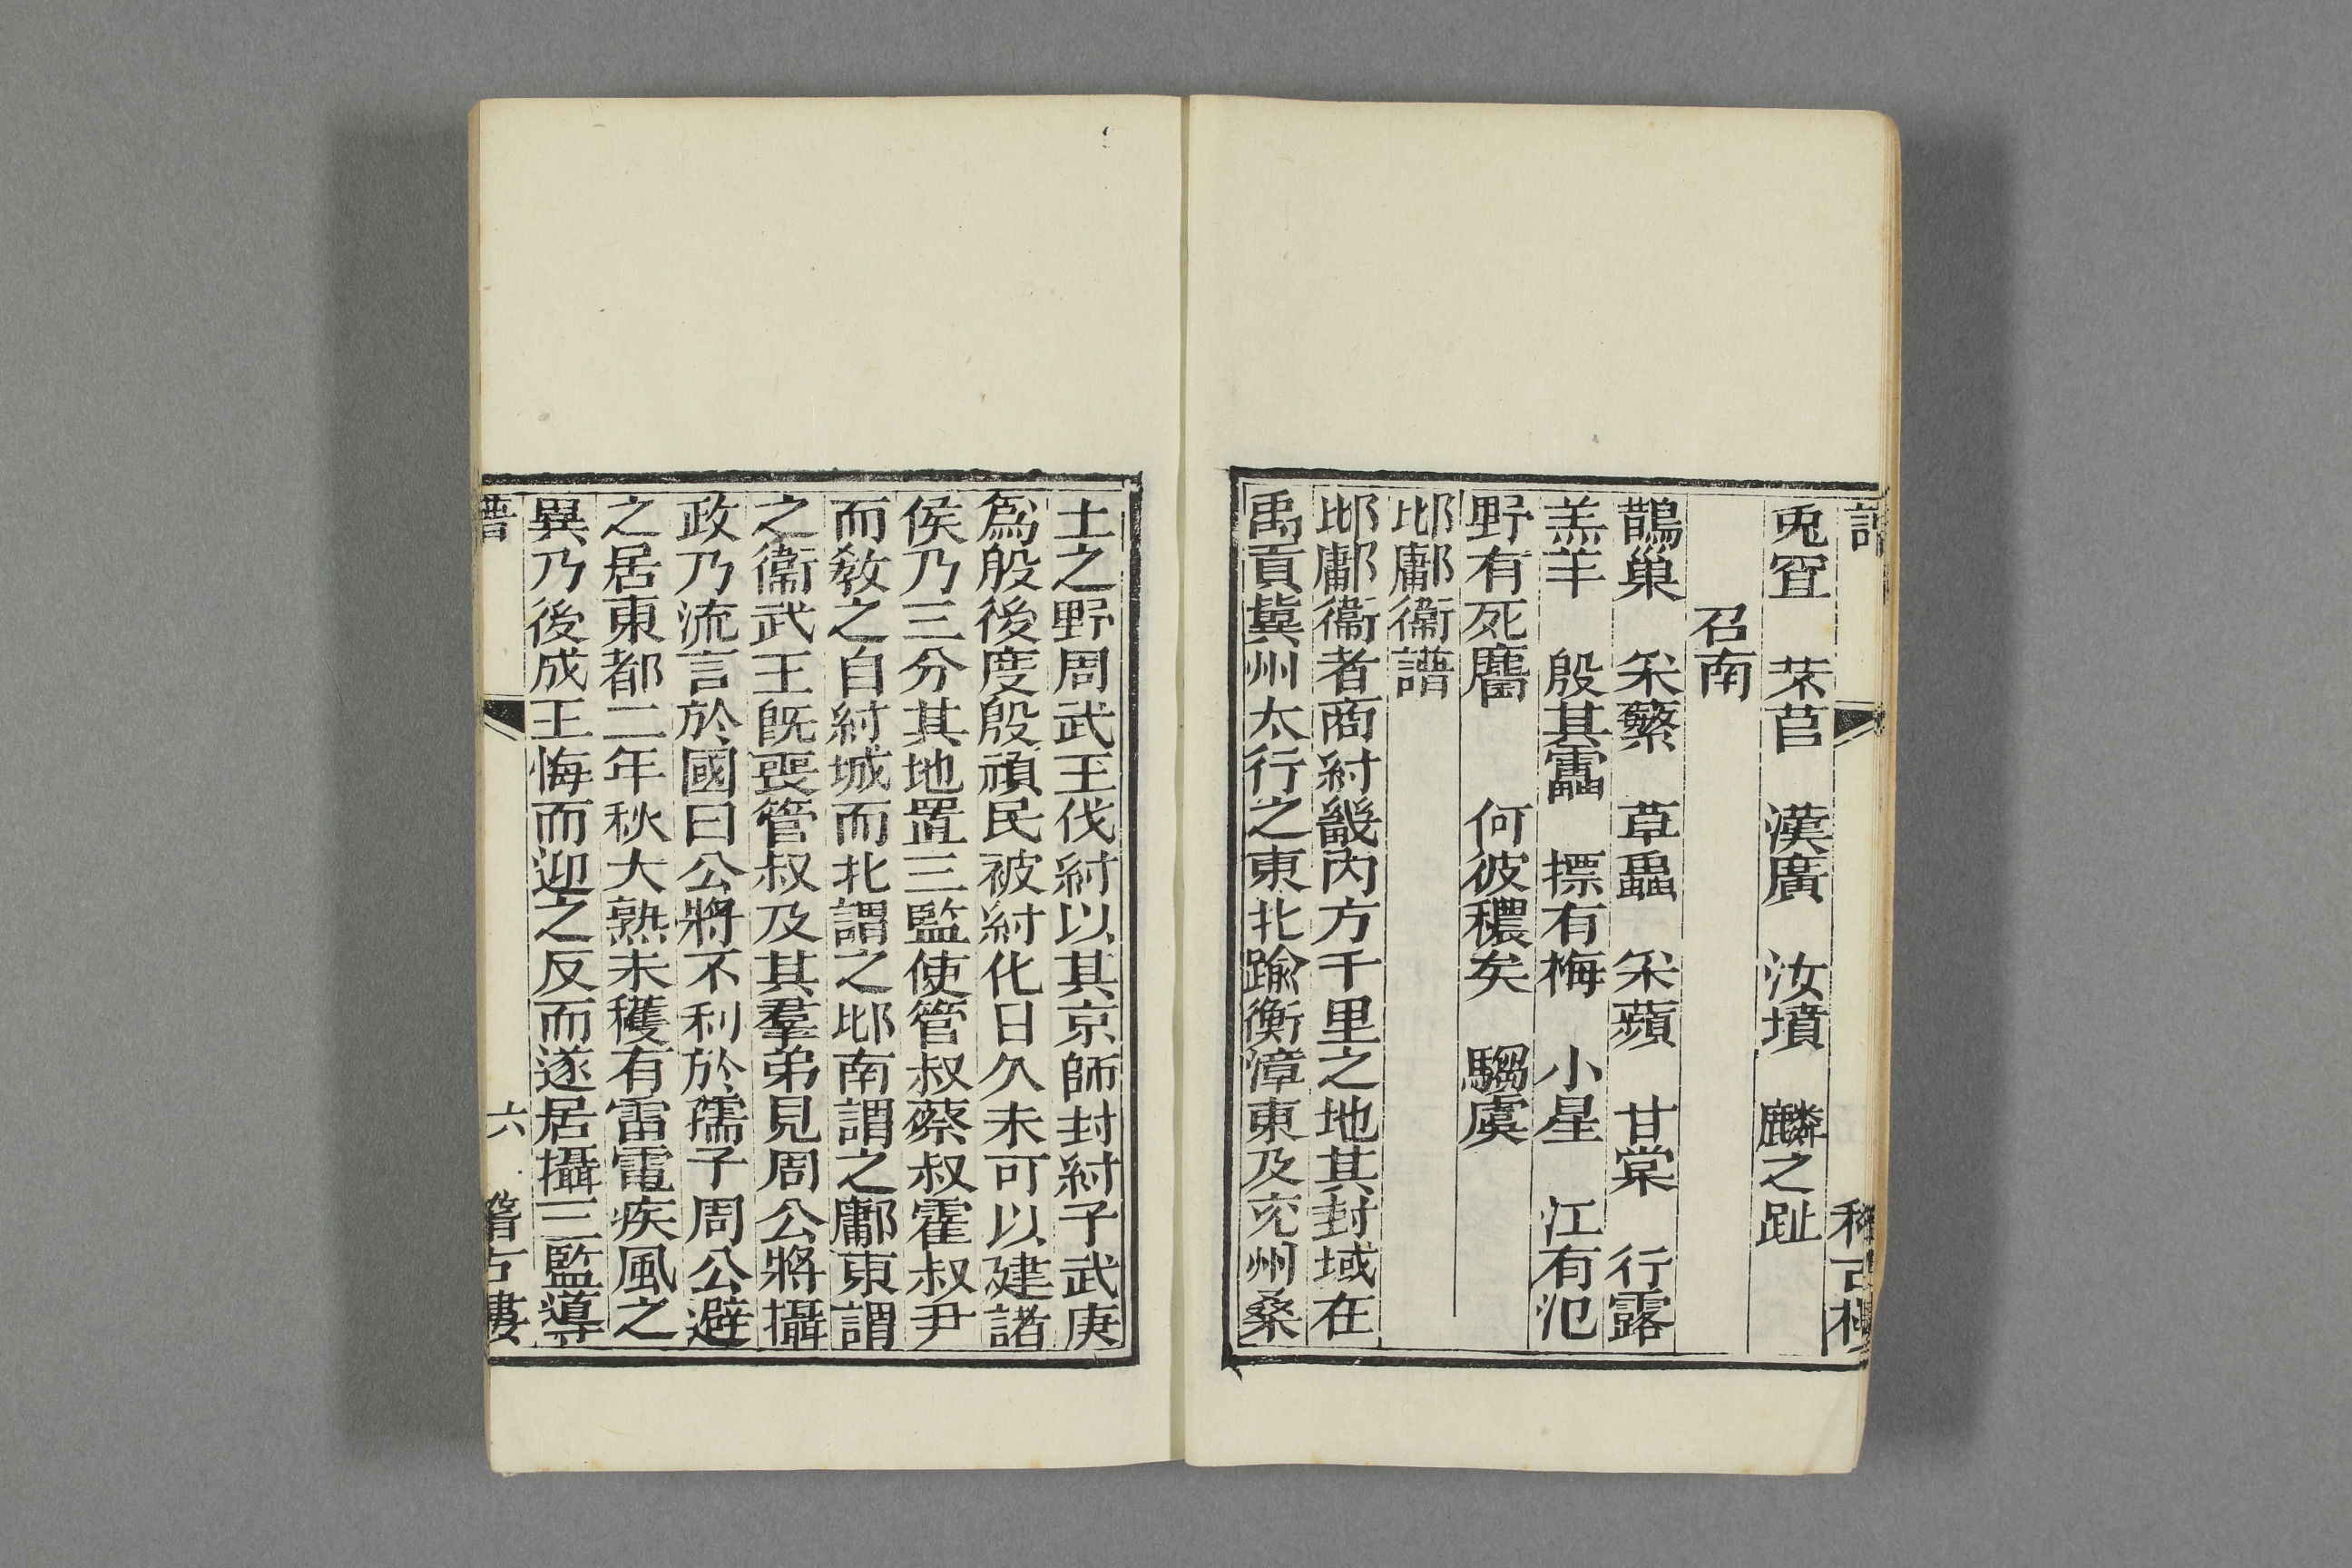 兎罝　芣苢　漢廣　汝墳　麟之趾
召南
鵲巢　采蘩　草蟲　采蘋　甘棠　行露
羔羊　殷其靁　摽有梅　小星　江有汜
野有死麕　何彼穠矣　騶虞
邶鄘衞譜
邶鄘衞者商紂畿内方千里之地其封域在
禹貢冀州太行之東北踰衡漳東及兖州桑
土之野周武王伐紂以其京師封紂子武庚
爲殷後庋殷頑民被紂化日久未可以建諸
侯乃三分其地置三監使管叔蔡叔霍叔尹
而敎之自紂城而北謂之邶南謂之鄘東謂
之衞武王旣喪管叔及其羣弟見周公將攝
政乃流言於國曰公將不利於孺子周公避
之居東都二年秋大熟未穫有雷電疾風之
異乃後成王悔而迎之反而遂居攝三監導
譜　六　稽古樓